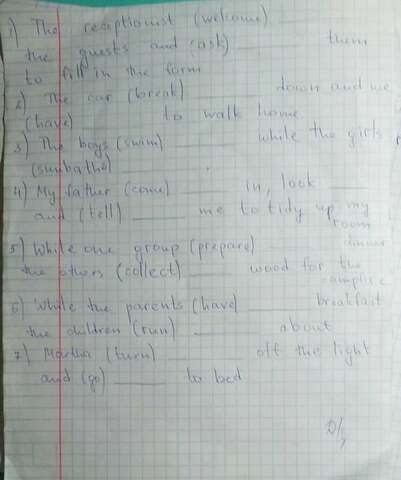 1) The receptionist (welcome)
the guests and (ask) ______ them
to fill in the form
2) The car (break) ______ down and we
(have) ______ to walk home
3) The boys (swim) ______ while the girls
(sunbathe) ______
4) My father (come) ______ in, look ______
and (tell) ______ me to tidy up my
room
5) While one group (prepare) ______ dinner
the others (collect) ______ wood for the
campfire
6) While the parents (have) ______ breakfast
the children (run) ______ about
7) Martha (turn) ______ off the light
and (go) ______ to bed